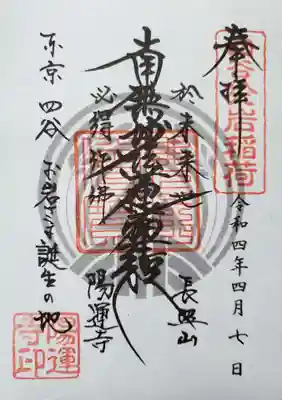 四谷於岩稲荷
奉拝
令和四年四月七日
南無妙法蓮華経
於未来世
必得作佛
長照山
陽運寺
東京 四谷 お岩さま誕生の地
陽運寺印